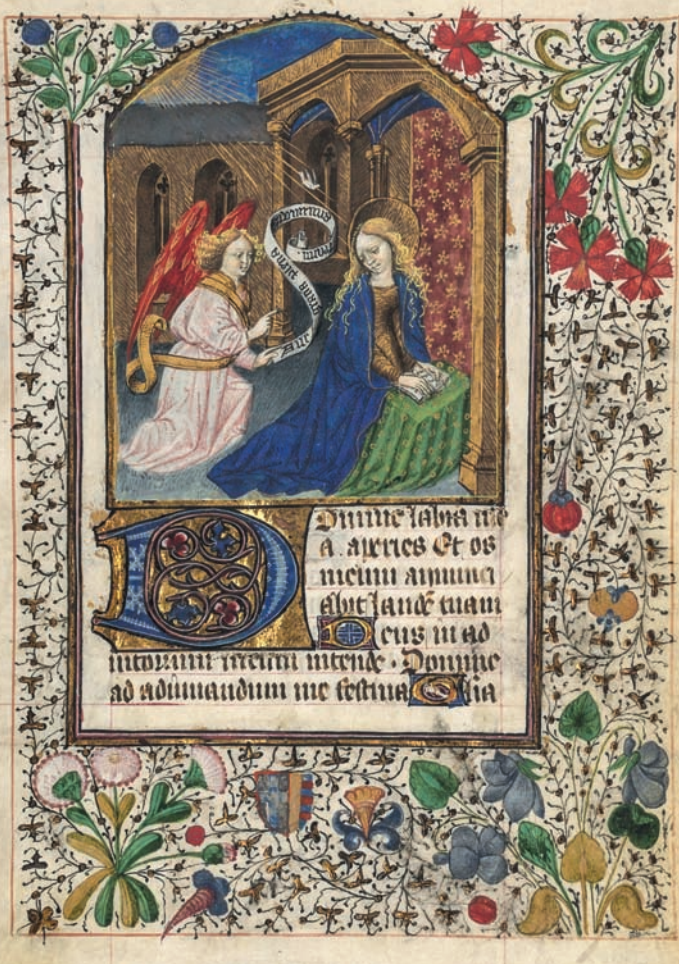 Aue gratia plena
dominus
tecum
Domine labia me
a . aperies Et os
meum annunci
abit laudē tuam
Deus in ad
iutorium meum intende . Domine
ad adiuuandum me festina Glia